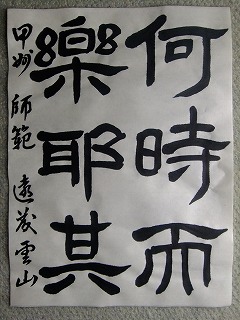 何時而
樂耶其
甲州 師範 遠藤雲山